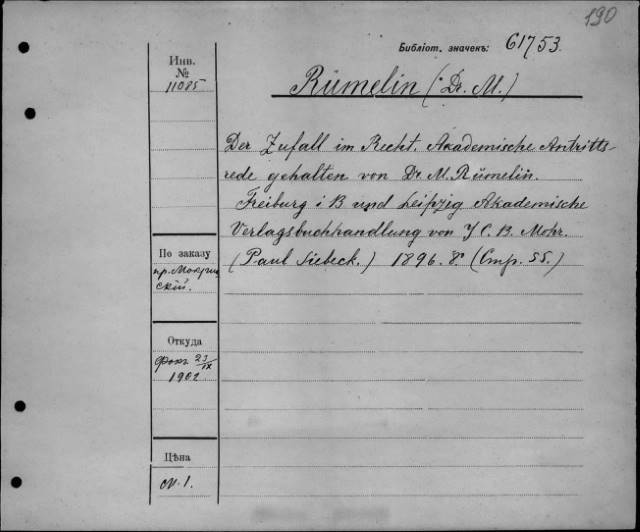 190
Библіот. значекъ: 61753.
Инв.
№
11085
Rümelin (: Dr. M.)
Der Zufall im Recht. Akademische Antritts-
rede gehalten von Dr. M. Rümelin.
Freiburg i B und Leipzig Akademische
Verlagsbuchhandlung von J C. B. Mohr.
(Paul Siebeck.) 1896. 8° (Стр. 55.)
По заказу
пр. Мокрин
скій.
Откуда
Фокъ 23/IX
1902
Цѣна
М. 1.